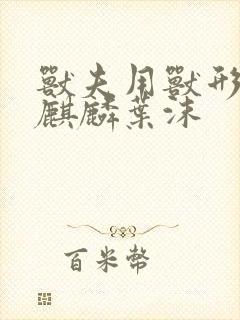 獸夫用獸形
麒麟葉沫
百米幣